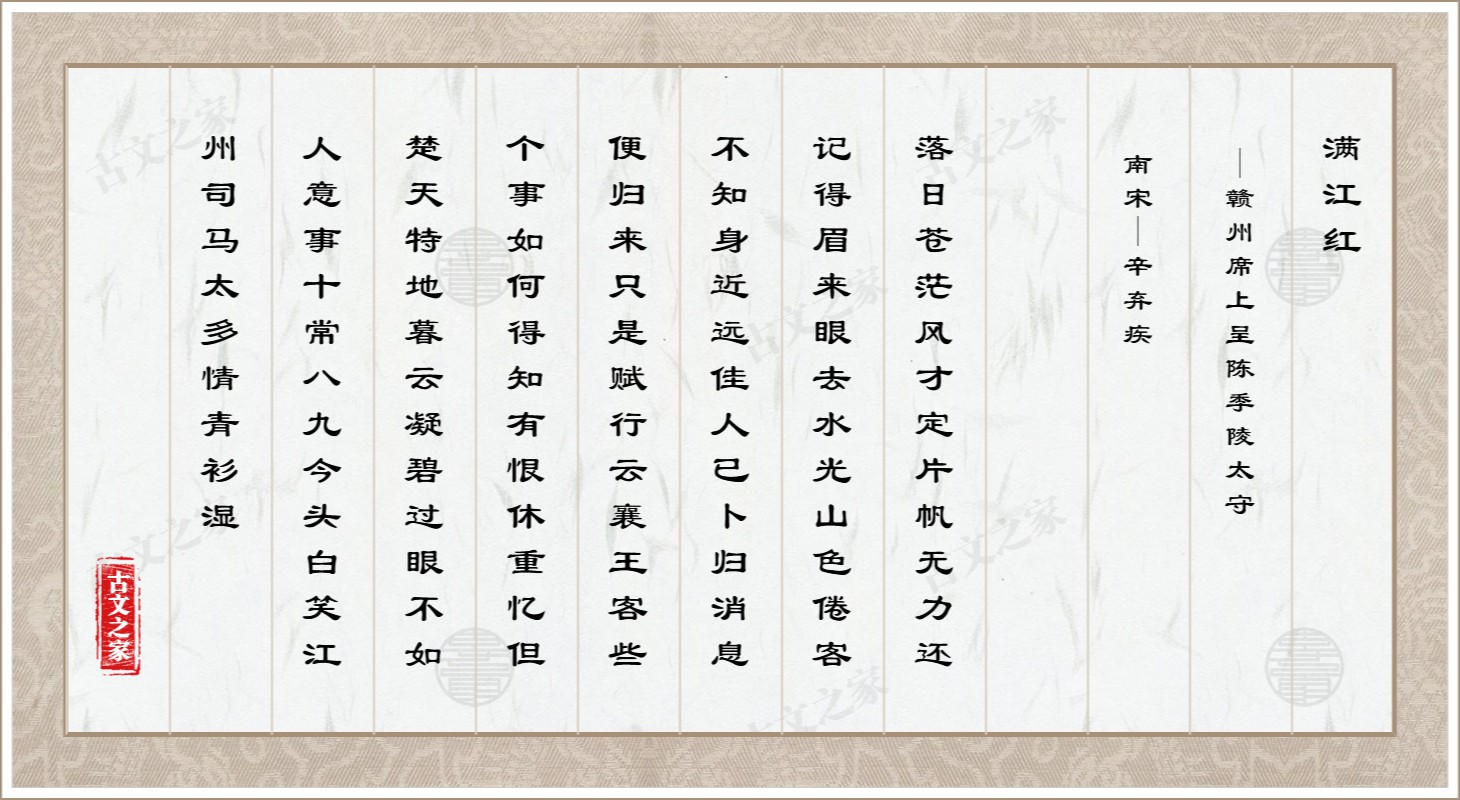 满江红
—赣州席上呈陈季陵太守
南宋—辛弃疾
落日苍茫风才定片帆无力还
记得眉来眼去水光山色倦客
不知身近远佳人已卜归消息
便归来只是赋行云襄王客些
个事如何得知有恨休重忆但
楚天特地暮云凝碧过眼不如
人意事十常八九今头白笑江
州司马太多情青衫湿
古文之家
古文之家
古文之家
古文之家
古文之家
古文之家
古文之家